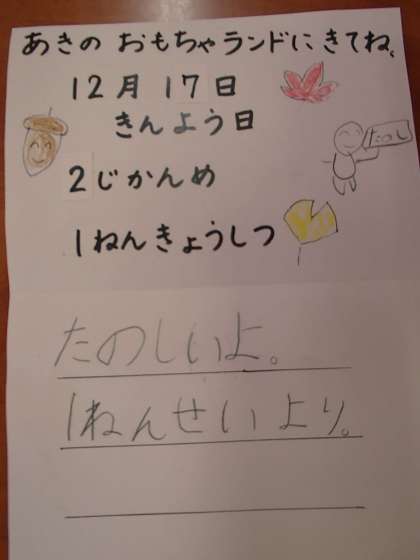 あきの おもちゃランドにきてね。
12月17日
きんよう日
たのし
2じかんめ
1ねんきょうしつ
たのしいよ。
1ねんせいより。